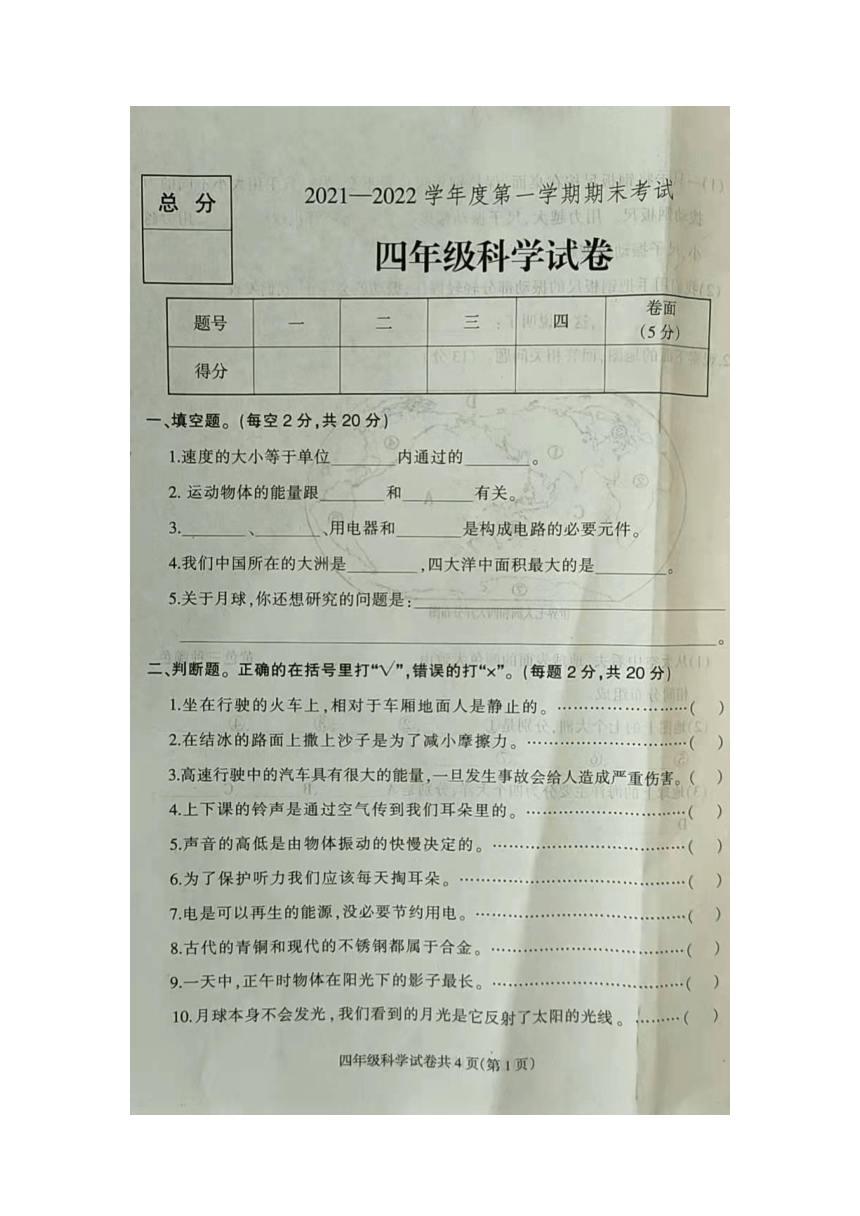 总 分
2021—2022 学年度第一学期期末考试
四年级科学试卷
题号 一 二 三 四 卷面(5分)
得分
一、填空题。(每空2分,共20分)
1.速度的大小等于单位________内通过的________。
2. 运动物体的能量跟________和________有关。
3.________、________、用电器和________是构成电路的必要元件。
4.我们中国所在的大洲是________,四大洋中面积最大的是________。
5.关于月球,你还想研究的问题是:________
________。
二、判断题。正确的在括号里打“√”,错误的打“×”。(每题2分,共20分)
1.坐在行驶的火车上,相对于车厢地面人是静止的。……………………( )
2.在结冰的路面上撒上沙子是为了减小摩擦力。………………………( )
3.高速行驶中的汽车具有很大的能量,一旦发生事故会给人造成严重伤害。( )
4.上下课的铃声是通过空气传到我们耳朵里的。………………………( )
5.声音的高低是由物体振动的快慢决定的。……………………………( )
6.为了保护听力我们应该每天掏耳朵。…………………………………( )
7.电是可以再生的能源,没必要节约用电。………………………………( )
8.古代的青铜和现代的不锈钢都属于合金。……………………………( )
9.一天中,正午时物体在阳光下的影子最长。……………………………( )
10.月球本身不会发光,我们看到的月光是它反射了太阳的光线。………( )
四年级科学试卷共4页(第1页)